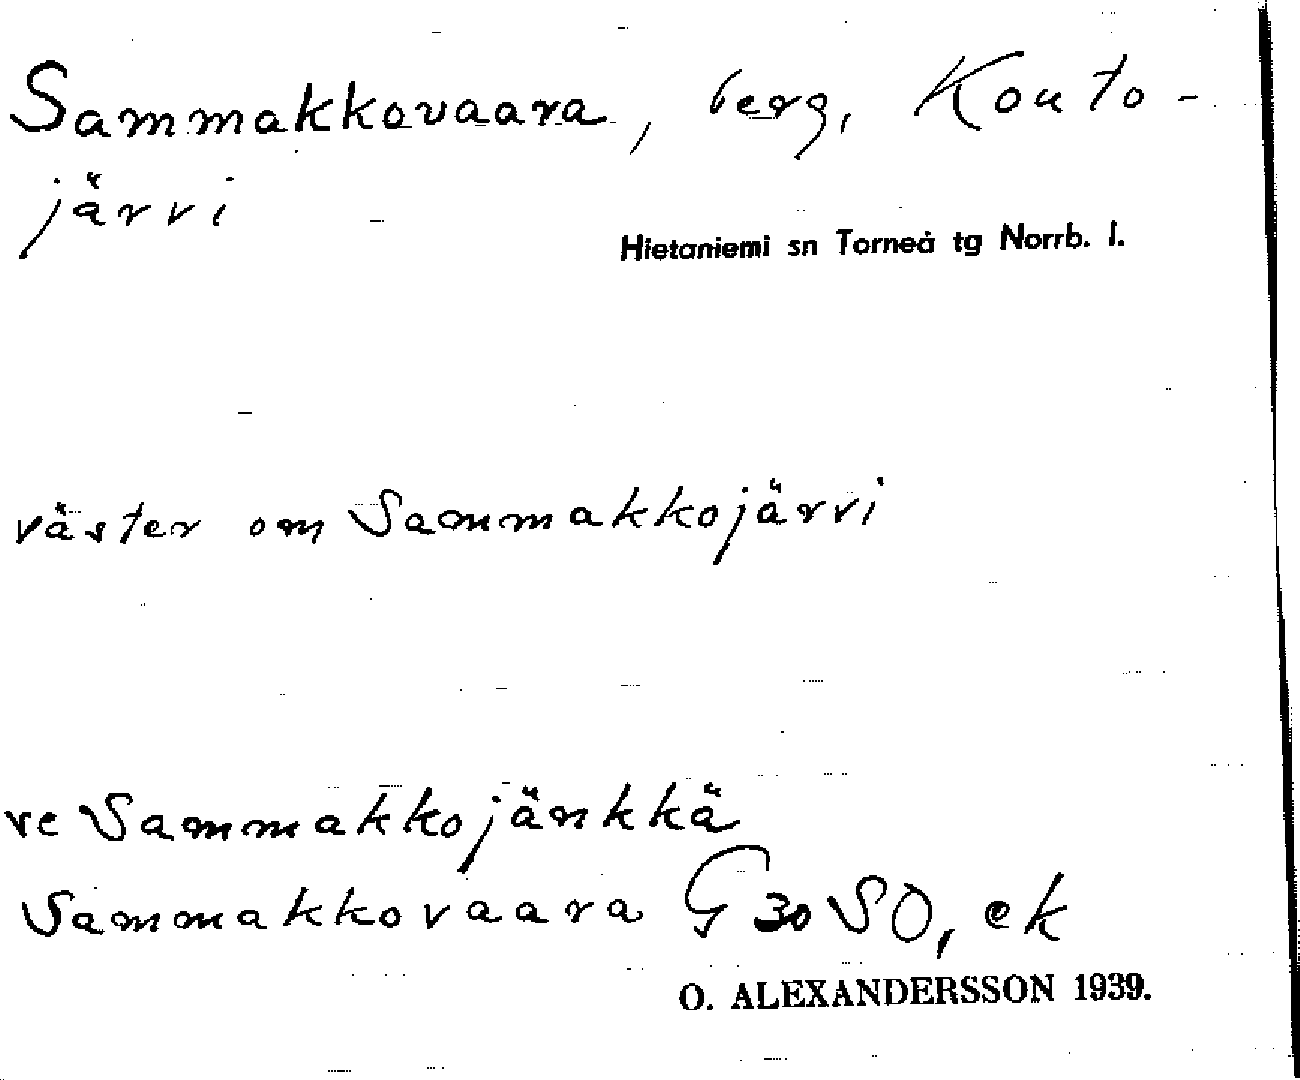 Sammakkovaara, berg, Kouto-
järvi
Hietaniemi sn Torneå tg Norrb. l.
väster om Sammakkojärvi
ve Sammakkojänkkä
Sammakkovaara G 30 SO, ek
O. ALEXANDERSSON 1939.